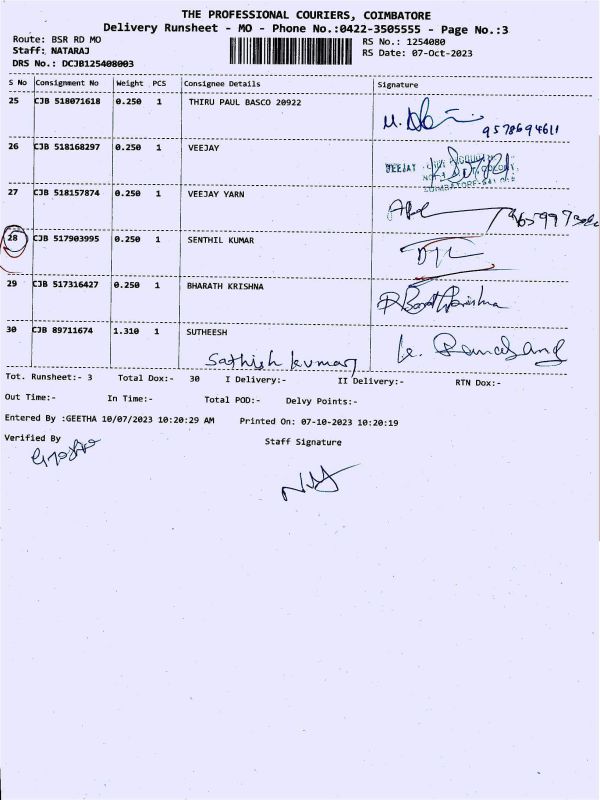 THE PROFESSIONAL COURIERS, COIMBATORE
Delivery Runsheet - MO - Phone No.:0422-3505555 - Page No.:3
Route: BSR RD MO
RS No.: 1254080
Staff: NATARAJ
RS Date: 07-Oct-2023
DRS No.: DCJB125408003
S No Consignment No Weight PCS Consignee Details Signature
25 CJB 518071618 0.250 1 THIRU PAUL BASCO 20922
9578694611
26 CJB 518168297 0.250 1 VEEJAY
VEEJAY
27 CJB 518157874 0.250 1 VEEJAY YARN
28 CJB 517903995 0.250 1 SENTHIL KUMAR
29 CJB 517316427 0.250 1 BHARATH KRISHNA
30 CJB 89711674 1.310 1 SUTHEESH
Sathish kumar
Tot. Runsheet:- 3 Total Dox:- 30 I Delivery:- II Delivery:- RTN Dox:-
Out Time:- In Time:- Total POD:- Delvy Points:-
Entered By :GEETHA 10/07/2023 10:20:29 AM Printed On: 07-10-2023 10:20:19
Verified By
Staff Signature